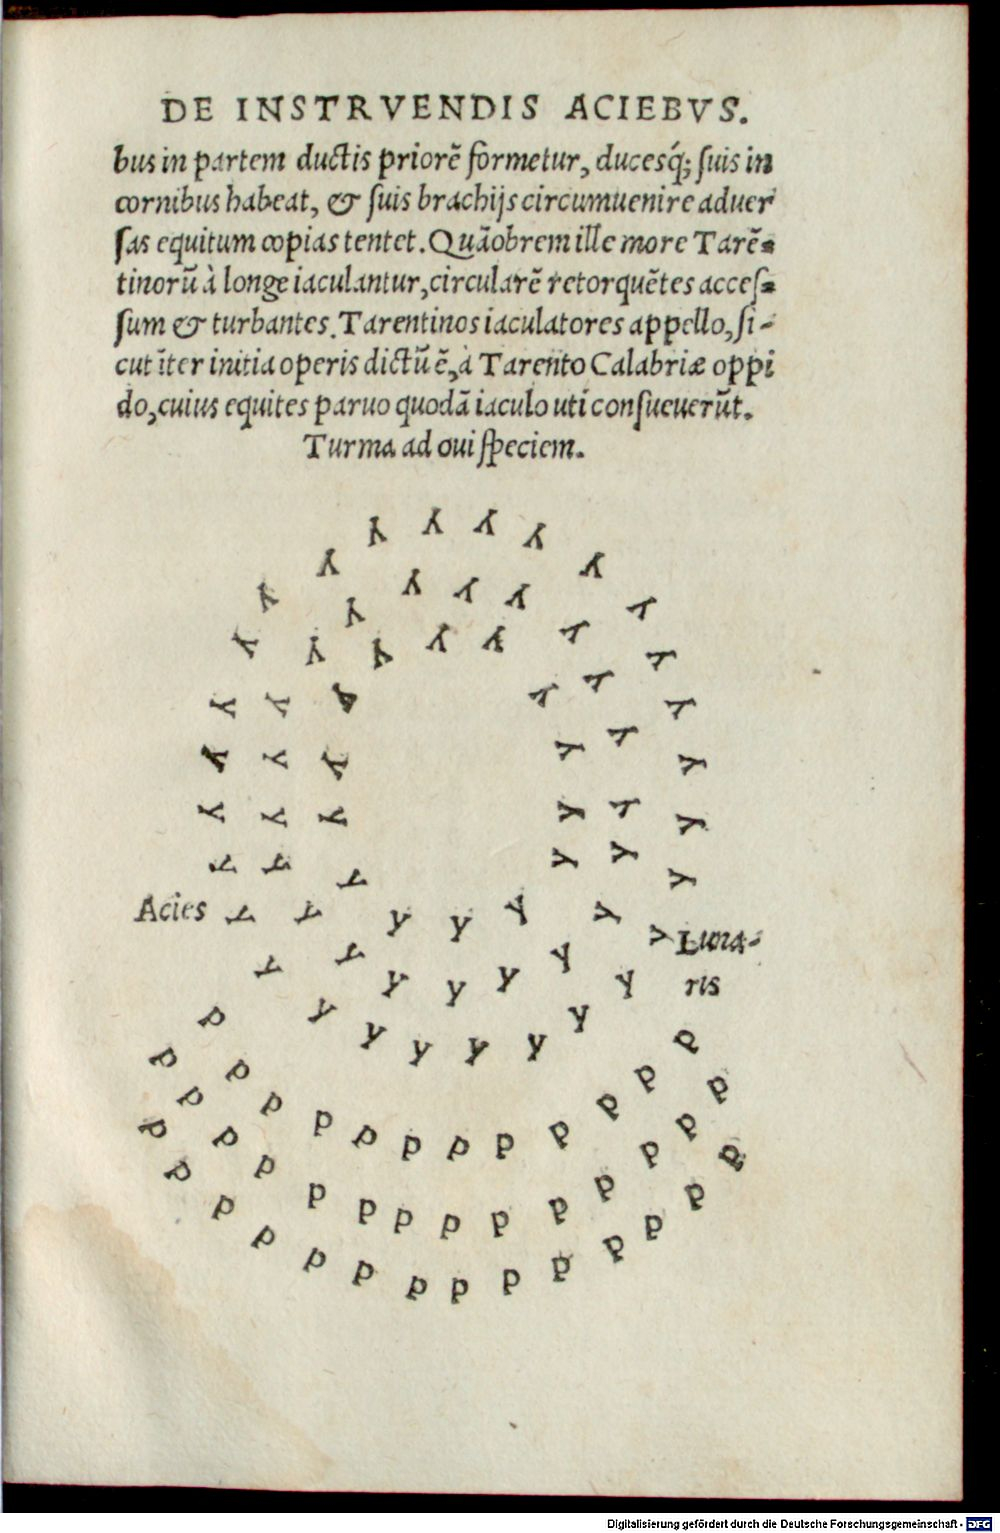 DE INSTRVENDIS ACIEBVS.
bus in partem ductis priorē formetur, ducesq́; suis in
cornibus habeat, & suis brachijs circumuenire aduer
sas equitum copias tentet. Quāobrem ille more Tarē-
tinorū à longe iaculantur, circularē retorquētes acces-
sum & turbantes. Tarentinos iaculatores appello, si-
cut īter initia operis dictū ē, à Tarento Calabriæ oppi
do, cuius equites paruo quodā iaculo uti consueuerūt.
Turma ad oui speciem.
Acies
Luna-
ris
Digitalisierung gefördert durch die Deutsche Forschungsgemeinschaft - DFG